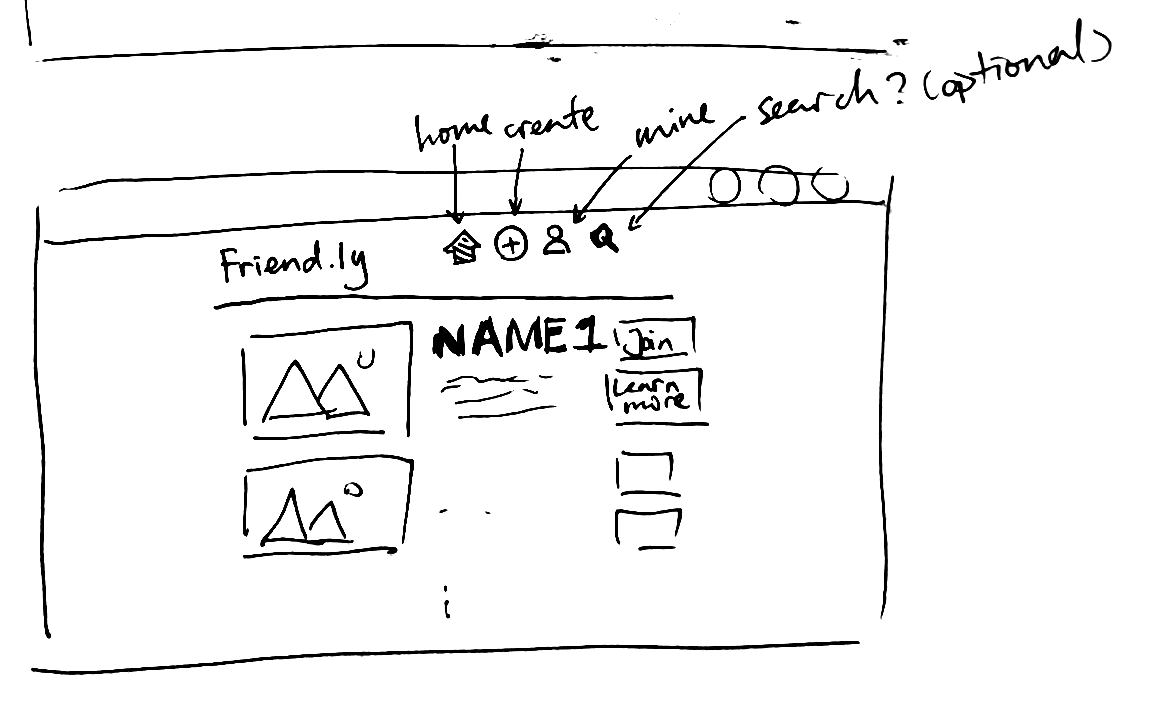 home create mine search? (optional)
Friend.ly
NAME 1 Join
Learn
more